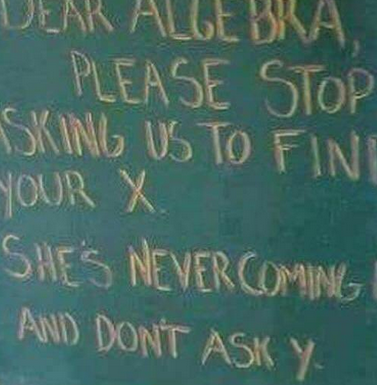 DEAR ALGEBRA,
PLEASE STOP
ASKING US TO FIND
YOUR X.
SHE'S NEVER COMING
AND DON'T ASK Y.